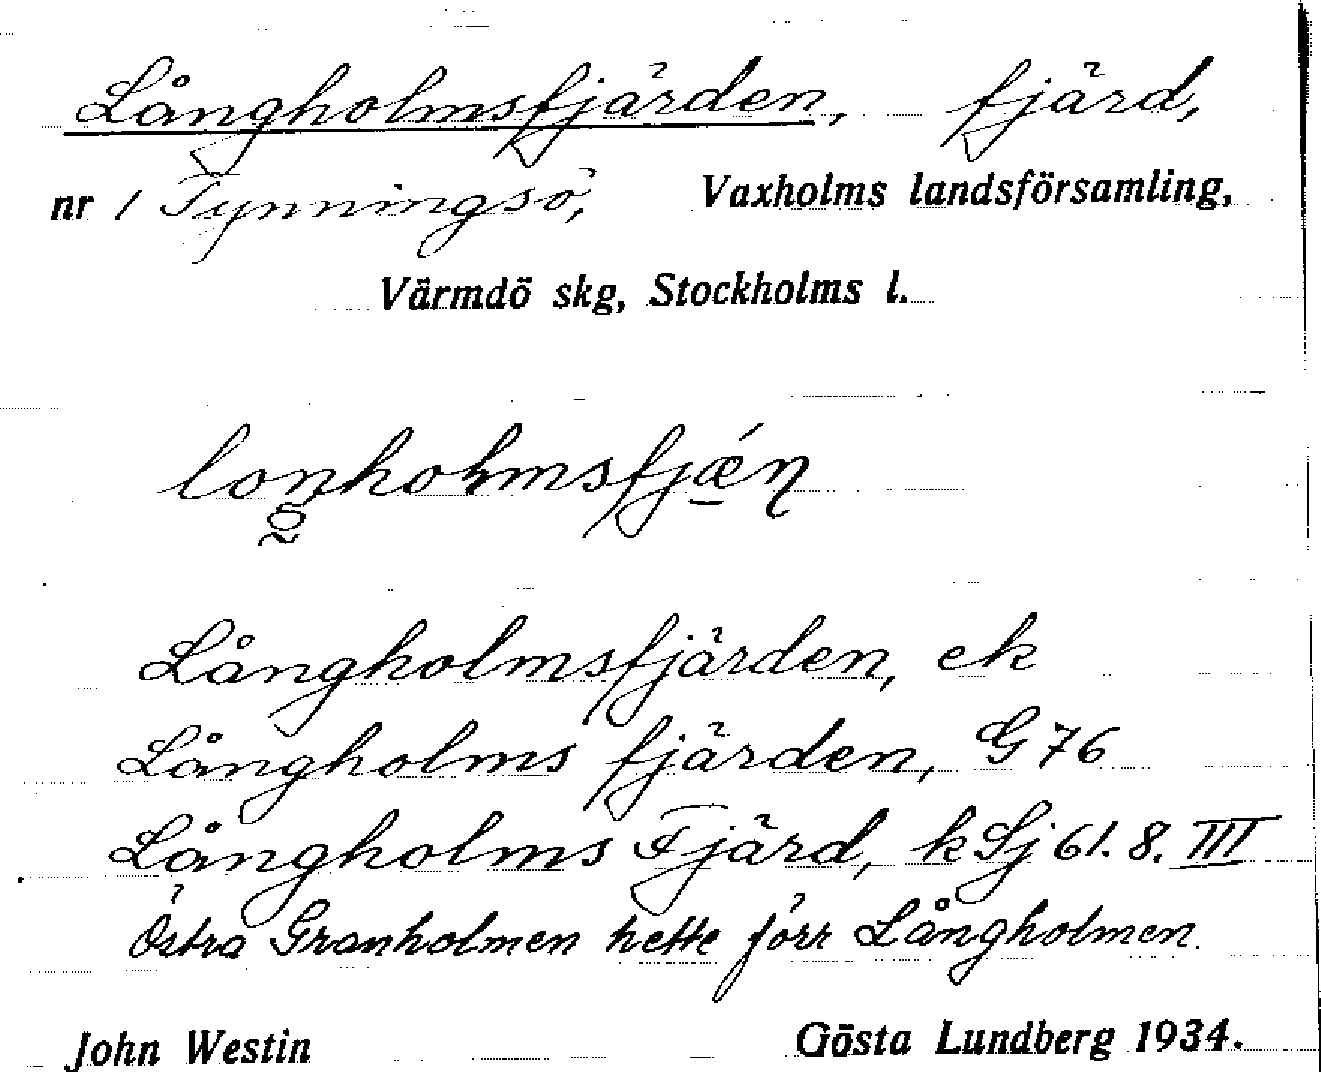 Långholmsfjärden, fjärd,
nr 1 Tynningsö, Vaxholms landsförsamling,
Värmdö skg, Stockholms l.
Långholmsfjärden, ek
Långholms fjärden, G 76
Långholms Fjärd, k Sj 61. 8. III
Östra Granholmen hette förr Långholmen.
John Westin Gösta Lundberg 1934.